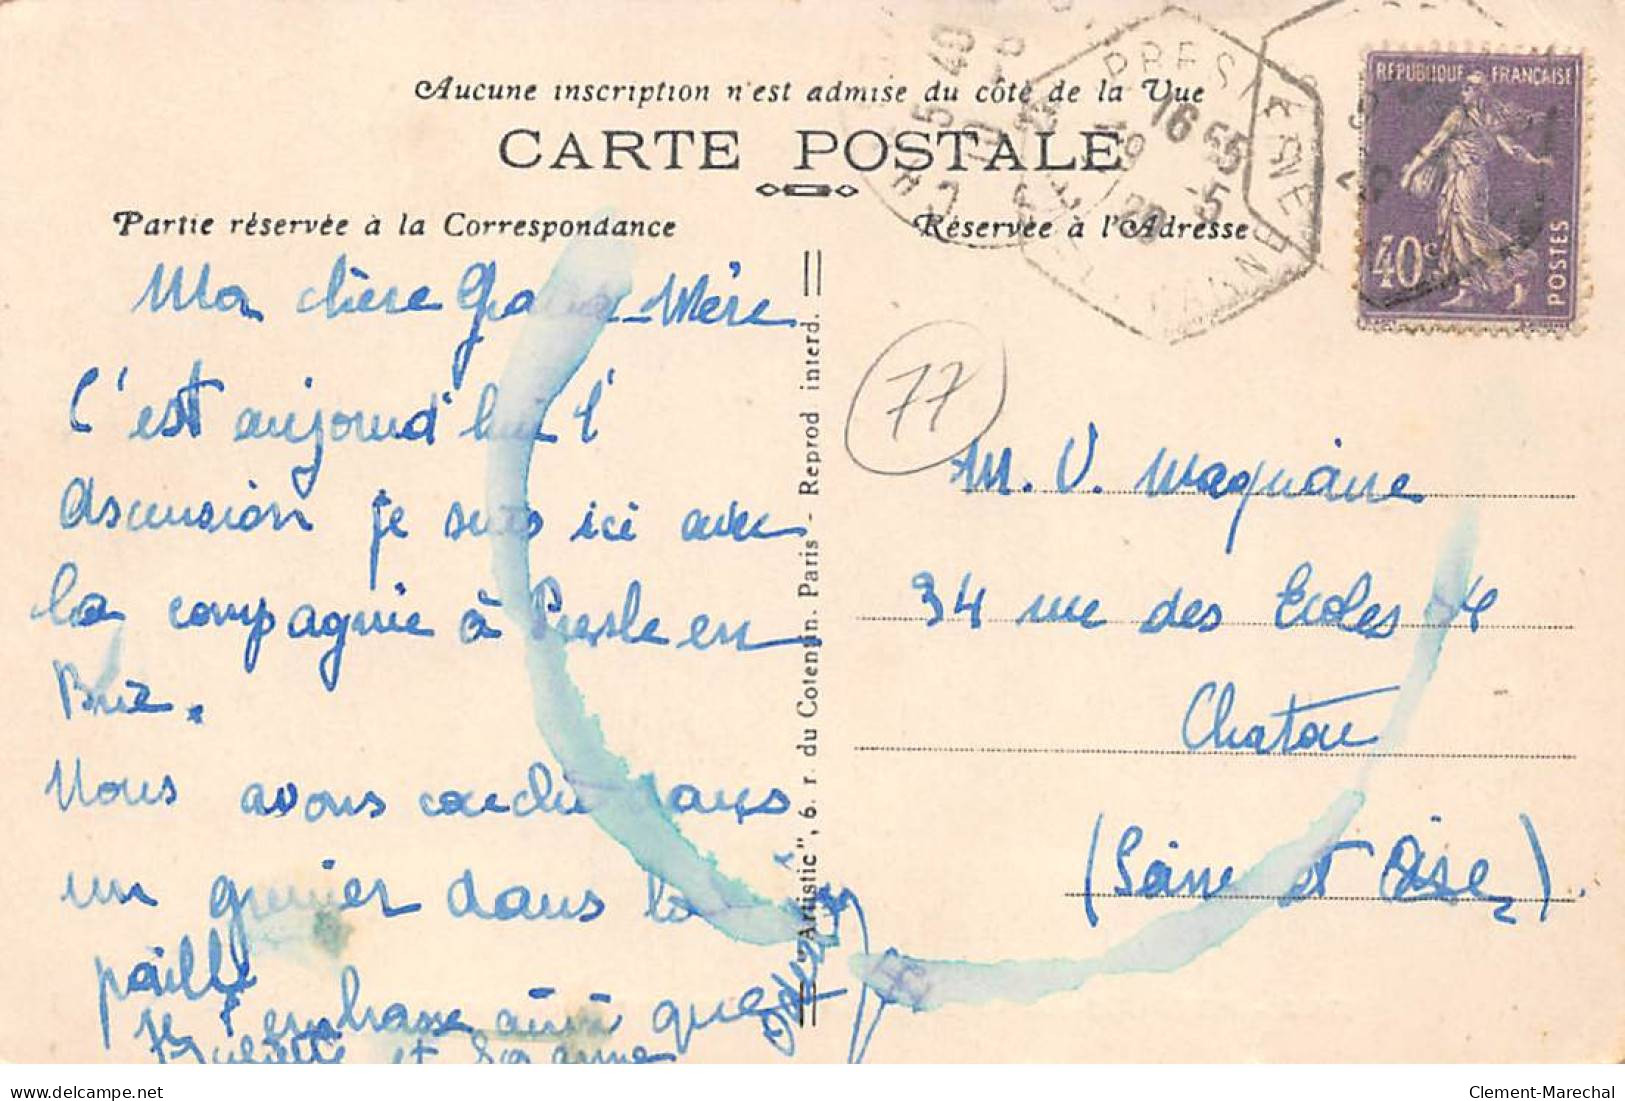 Aucune inscription n'est admise du côté de la Vue
CARTE POSTALE
Partie réservée à la Correspondance
Réservée à l'Adresse
RÉPUBLIQUE FRANÇAISE
40c
POSTES
16 55
19 5
Ma chère Grand-Mère
C'est aujourd'hui l'
Ascension je suis ici avec
la compagnie à Presle en
Brie.
Nous avons couché dans
un grenier dans la
paille
Je t'embrasse ainsi que
Juliette et Suzanne
"Artistic", 6. r. du Cotentin. Paris - Reprod interd.
77
M. V. Magniane
34 rue des Ecoles 34
Chatou
(Seine et Oise)
delcampe.net
Clement-Marechal